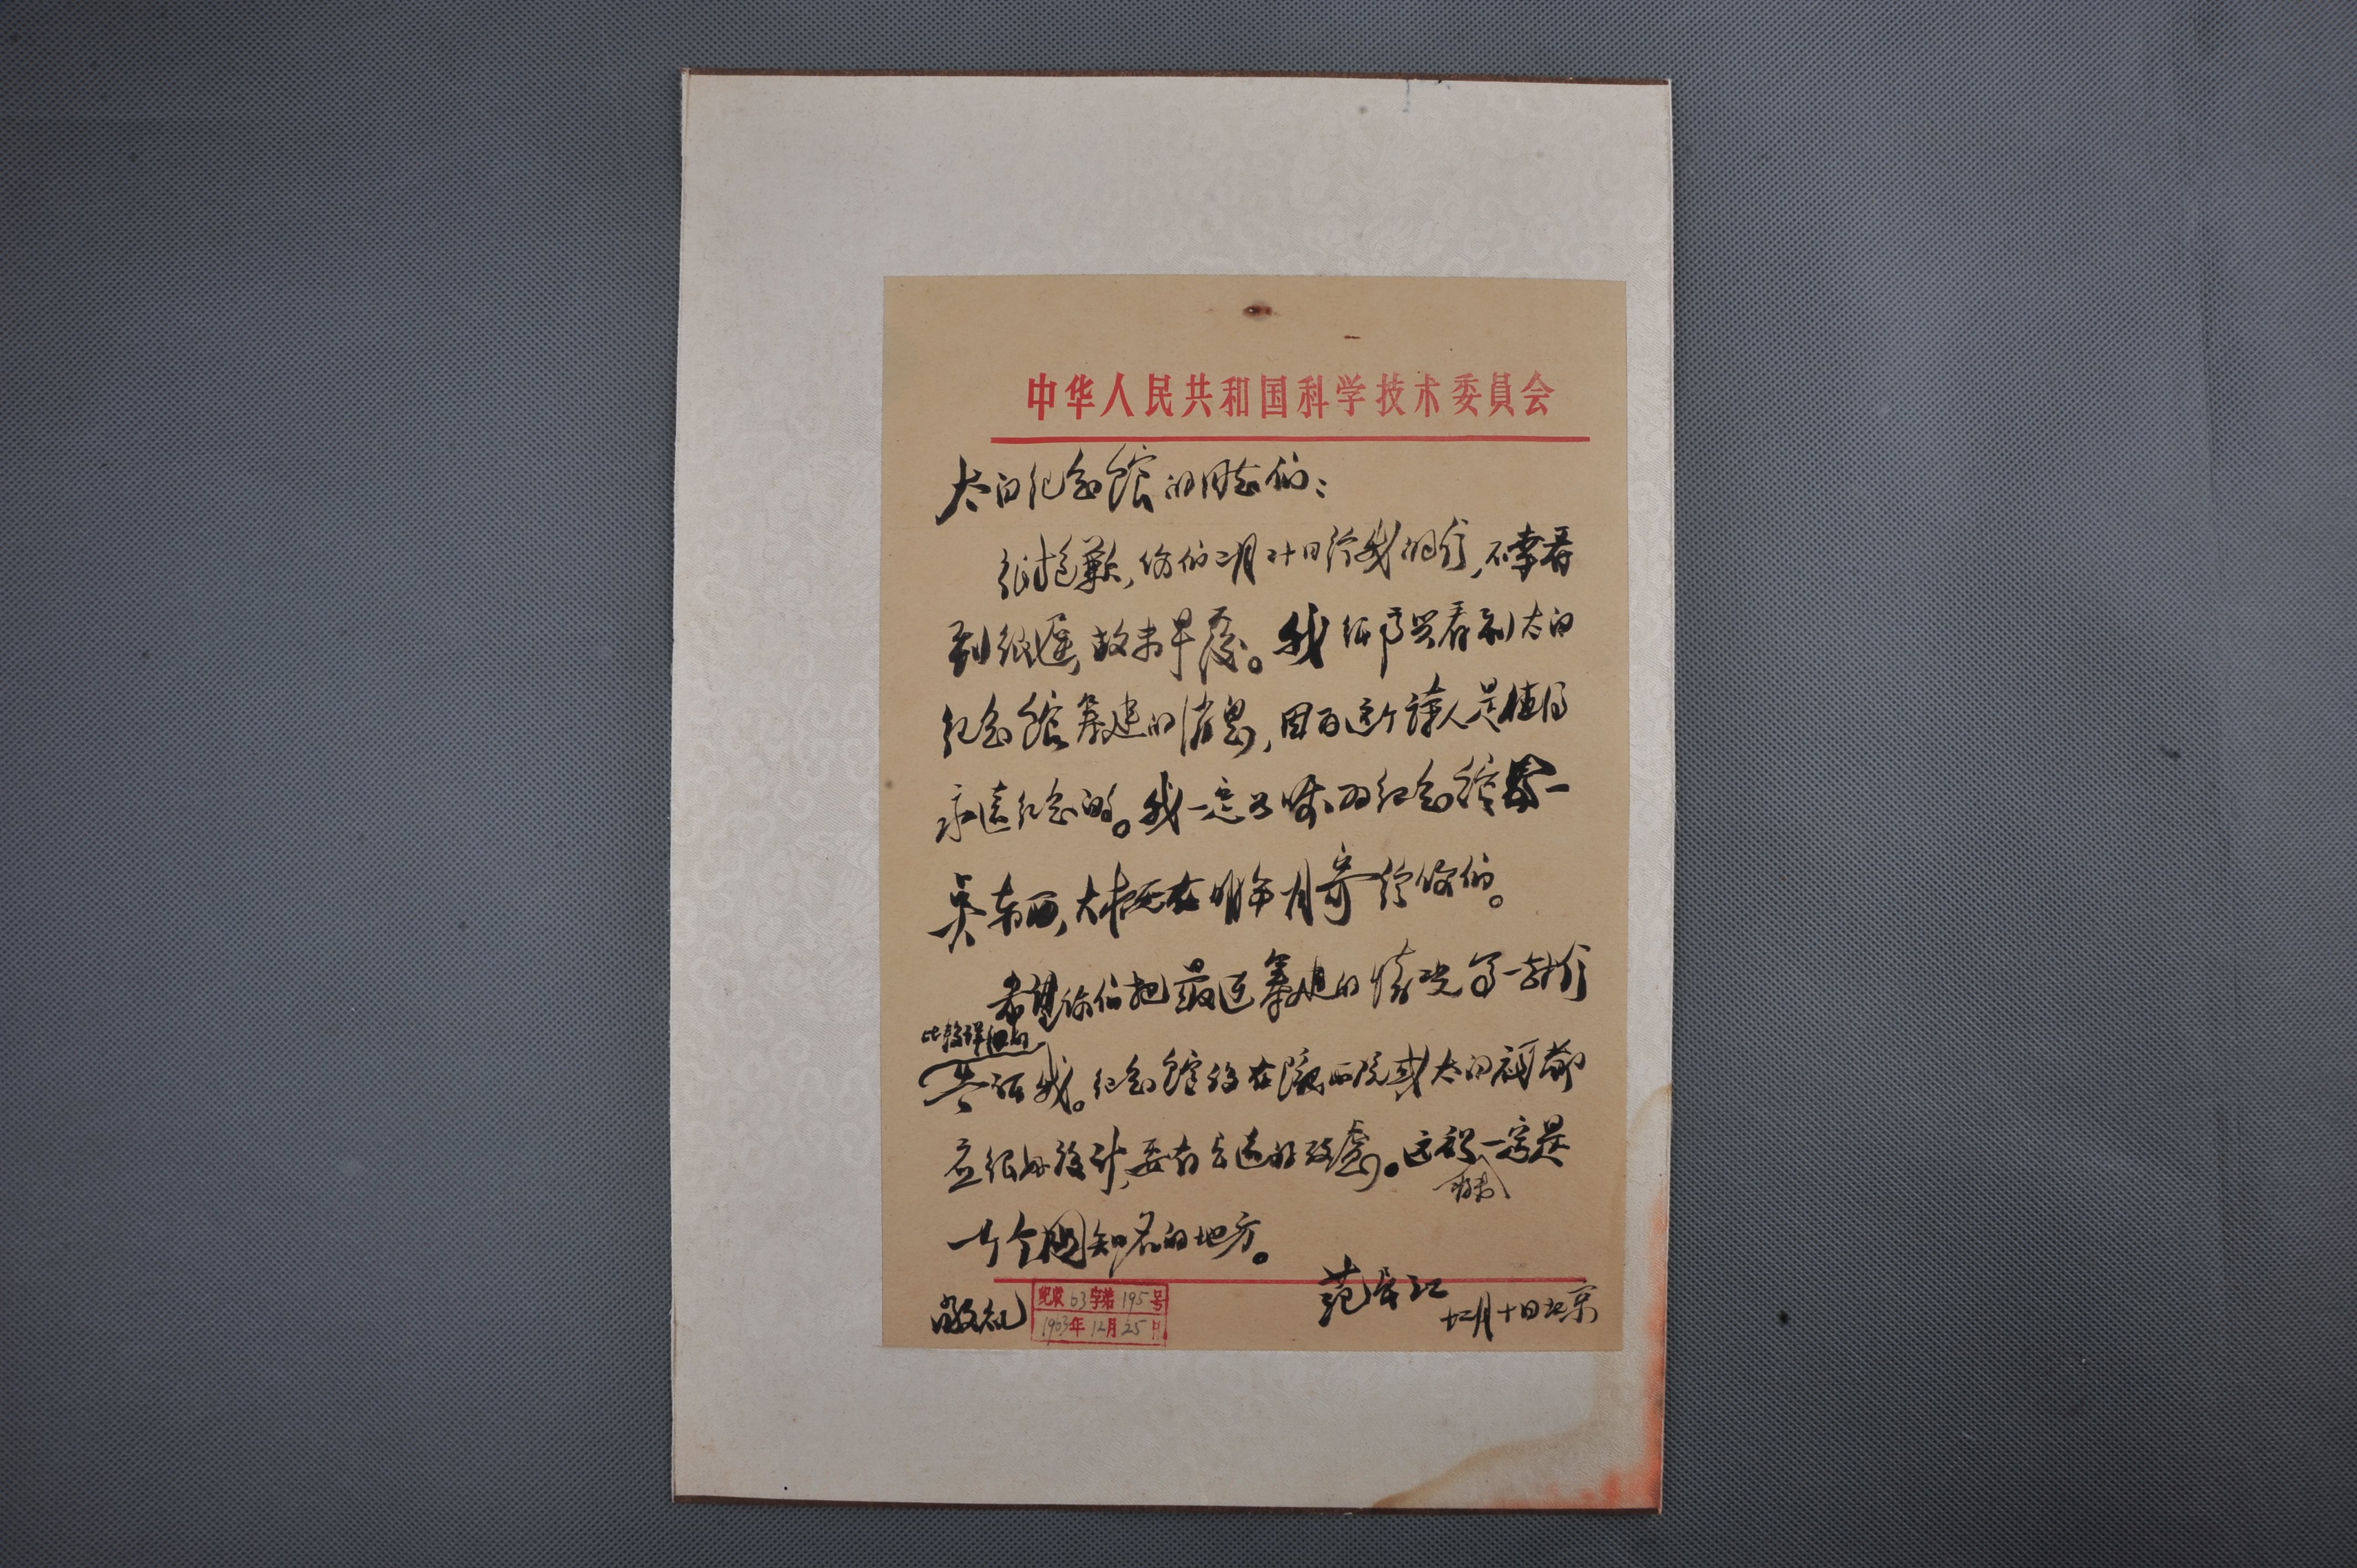 中华人民共和国科学技术委員会
太白纪念館的同志们：
很抱歉，你们二月二十日给我的信，不幸看
到很遲，故未早复。我很高兴看到太白
纪念館筹建的消息，因为这个詩人是值得
永远纪念的。我一定为你们的纪念館写一
点东西，大概在明年一月寄给你们。
希望你们把最近筹建的情况写一封信
比較详细的
告诉我。纪念館设在陇西院或太白祠都
应很好设计，要有长远的考慮。这裡一定是
将来
一个全国知名的地方。
敬礼
范长江
十二月十日北京
纪收63字第195号
1963年12月25日